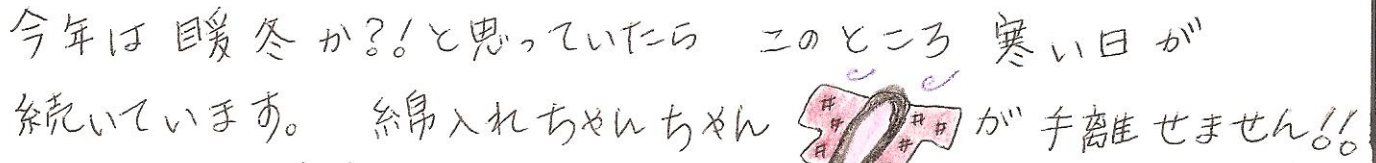 今年は暖冬か?!と思っていたら このところ 寒い日が
続いています。 綿入れちゃんちゃん が手離せません!!